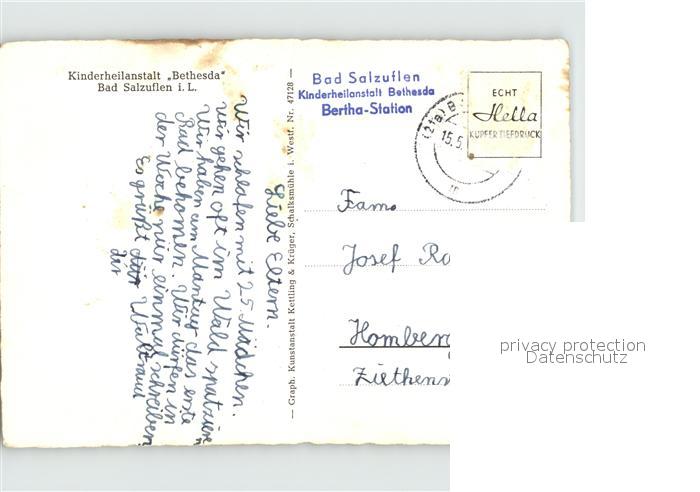 Kinderheilanstalt „Bethesda"
Bad Salzuflen i. L.
Liebe Eltern.
Wir schlafen mit 25 Mädchen.
Wir gehen oft im Wald spatziere
Wir haben am Mantag das erste
Bad bekomen. Wir dürfen in
der Woche nur einmal schreiben
Es grüßt
Waltraud
— Graph. Kunstanstalt Kettling & Krüger, Schalksmühle i. Westf. Nr. 47128 —
Bad Salzuflen
Kinderheilanstalt Bethesda
Bertha-Station
(21a) B
15.5.
ECHT
Hella
KUPFERTIEFDRUCK
Fam.
Josef Ro
Homberg
Ziethens
privacy protection
Datenschutz